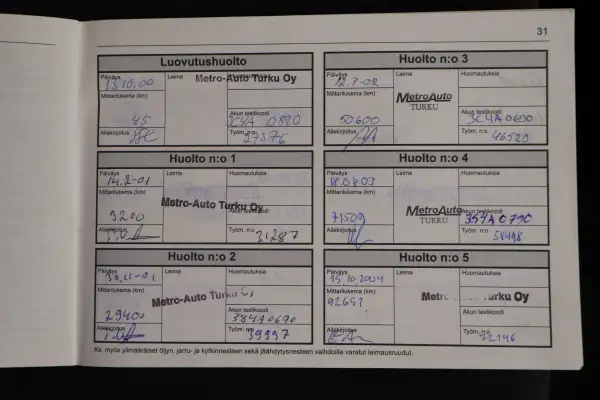 31
Luovutushuolto
Päiväys 13.10.00 Leima Metro-Auto Turku Oy Huomautuksia
Mittarilukema (km) 45
Akun testikoodi 3C4A 0820
Allekirjoitus Työm. n:o 27376
Huolto n:o 1
Päiväys 14.2-01 Leima Huomautuksia
Mittarilukema (km) 9200
Metro-Auto Turku Oy
Akun testikoodi
Allekirjoitus Työm. n:o 31287
Huolto n:o 2
Päiväys Leima Huomautuksia
Mittarilukema (km) 29400
Metro-Auto Turku
Akun testikoodi 384A0690
Allekirjoitus Työm. n:o 39997
Huolto n:o 3
Päiväys 12.7-02 Leima Huomautuksia
Mittarilukema (km) 50600
MetroAuto
TURKU
Akun testikoodi 3C4A 0690
Allekirjoitus Työm. n:o 46520
Huolto n:o 4
Päiväys 18.08.03 Leima Huomautuksia
Mittarilukema (km) 71509
MetroAuto
TURKU
Akun testikoodi 354A 0790
Allekirjoitus Työm. n:o 58498
Huolto n:o 5
Päiväys 15.10.2004 Leima Huomautuksia
Mittarilukema (km) 92651
Metr urku Oy
Akun testikoodi
Allekirjoitus Työm. n:o 72146
Ks. myös ylimääräiset öljyn, jarru- ja kytkinnesteen sekä jäähdytysnesteen vaihdoille varatut leimausruudut.